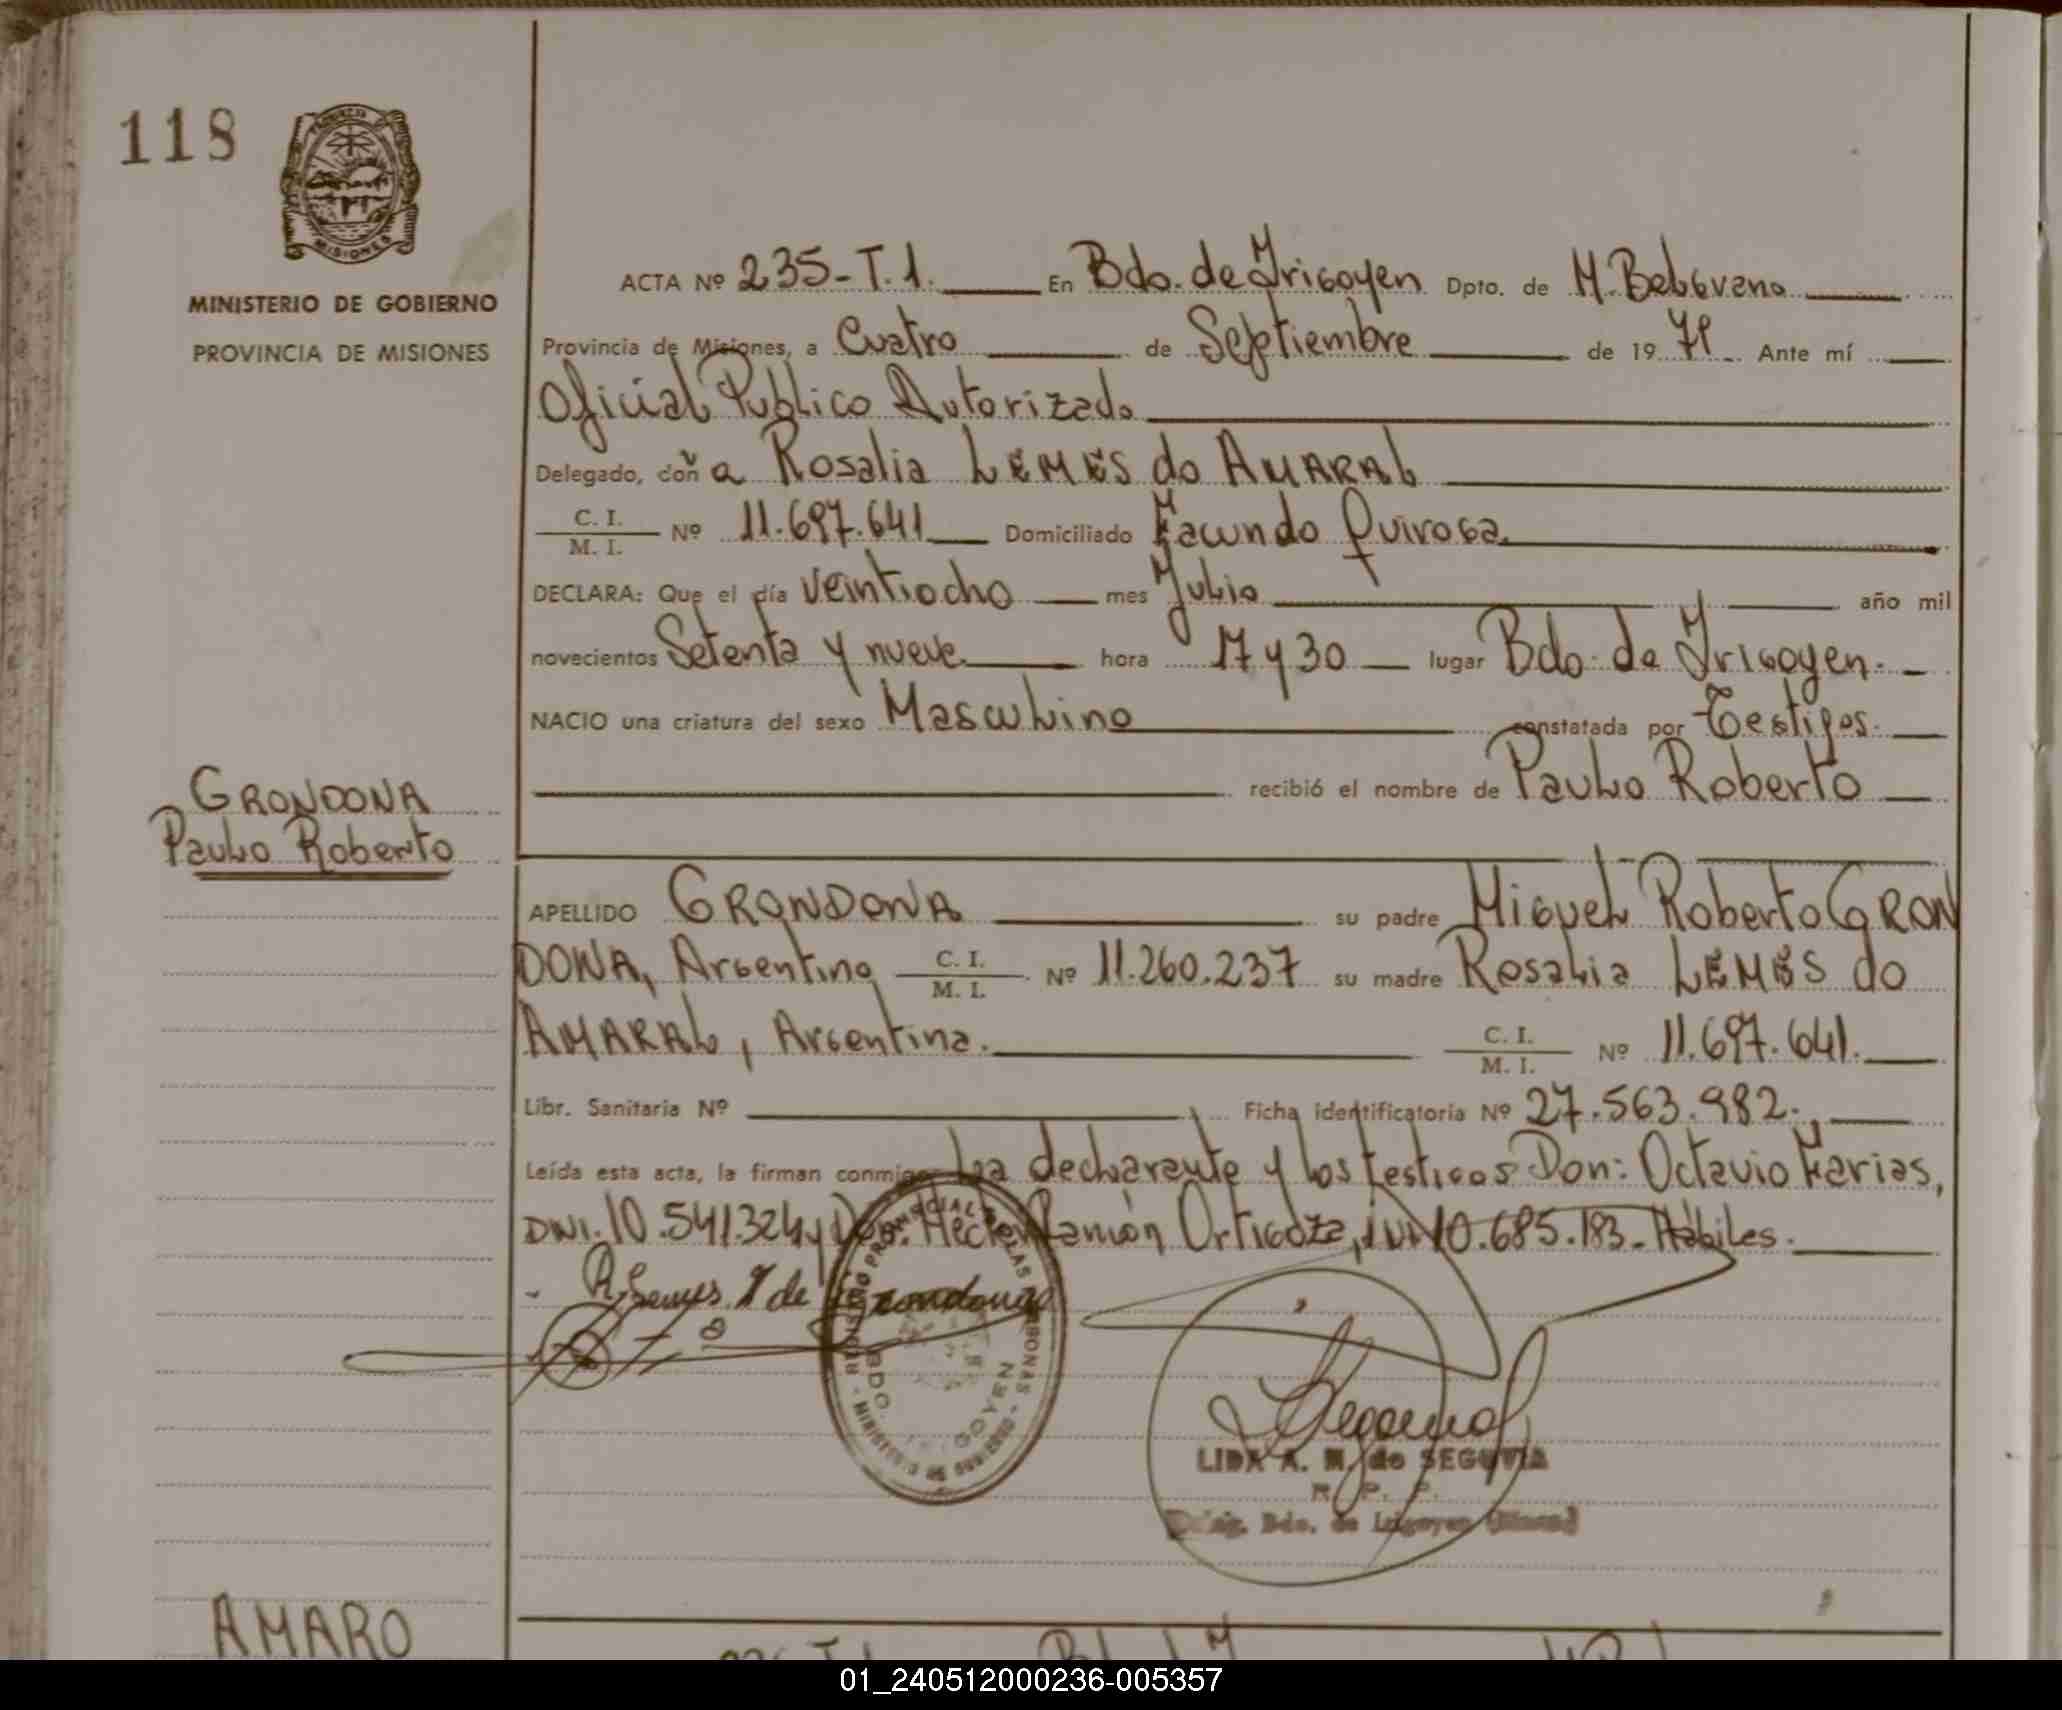 118
MISIONES
MINISTERIO DE GOBIERNO
PROVINCIA DE MISIONES
ACTA Nº 235-T.1. En Bdo. de Irigoyen Dpto. de M. Belgrano
Provincia de Misiones, a Cuatro de Septiembre de 1979 Ante mí
Oficial Publico Autorizado
Delegado, doña Rosalia LEMES do AMARAL
C. I.
M. I. Nº 11.697.641 Domiciliado Facundo Quiroga.
DECLARA: Que el día veintiocho mes Julio año mil
novecientos Setenta y nueve hora 17 y 30 lugar Bdo. de Irigoyen.
NACIO una criatura del sexo Masculino constatada por Testigos.
recibió el nombre de Paulo Roberto
GRONDONA
Paulo Roberto
APELLIDO GRONDONA su padre Miguel Roberto GRON
DONA, Argentino C. I.
M. I. Nº 11.260.237 su madre Rosalia LEMES do
AMARAL, Argentina. C. I.
M. I. Nº 11.697.641.
Libr. Sanitaria Nº Ficha identificatoria Nº 27.563.982.
Leída esta acta, la firman conmigo La declarante y los testigos Don: Octavio Farias,
DNI. 10.541.324 y Don: Hector Ramón Ortigoza, DNI 10.685.183. Hábiles.
de Grondona
BDO. IRIGOYEN
LIDA A. M. de SEGOVIA
R. P. P.
Bdo. de Irigoyen
AMARO
01_240512000236-005357